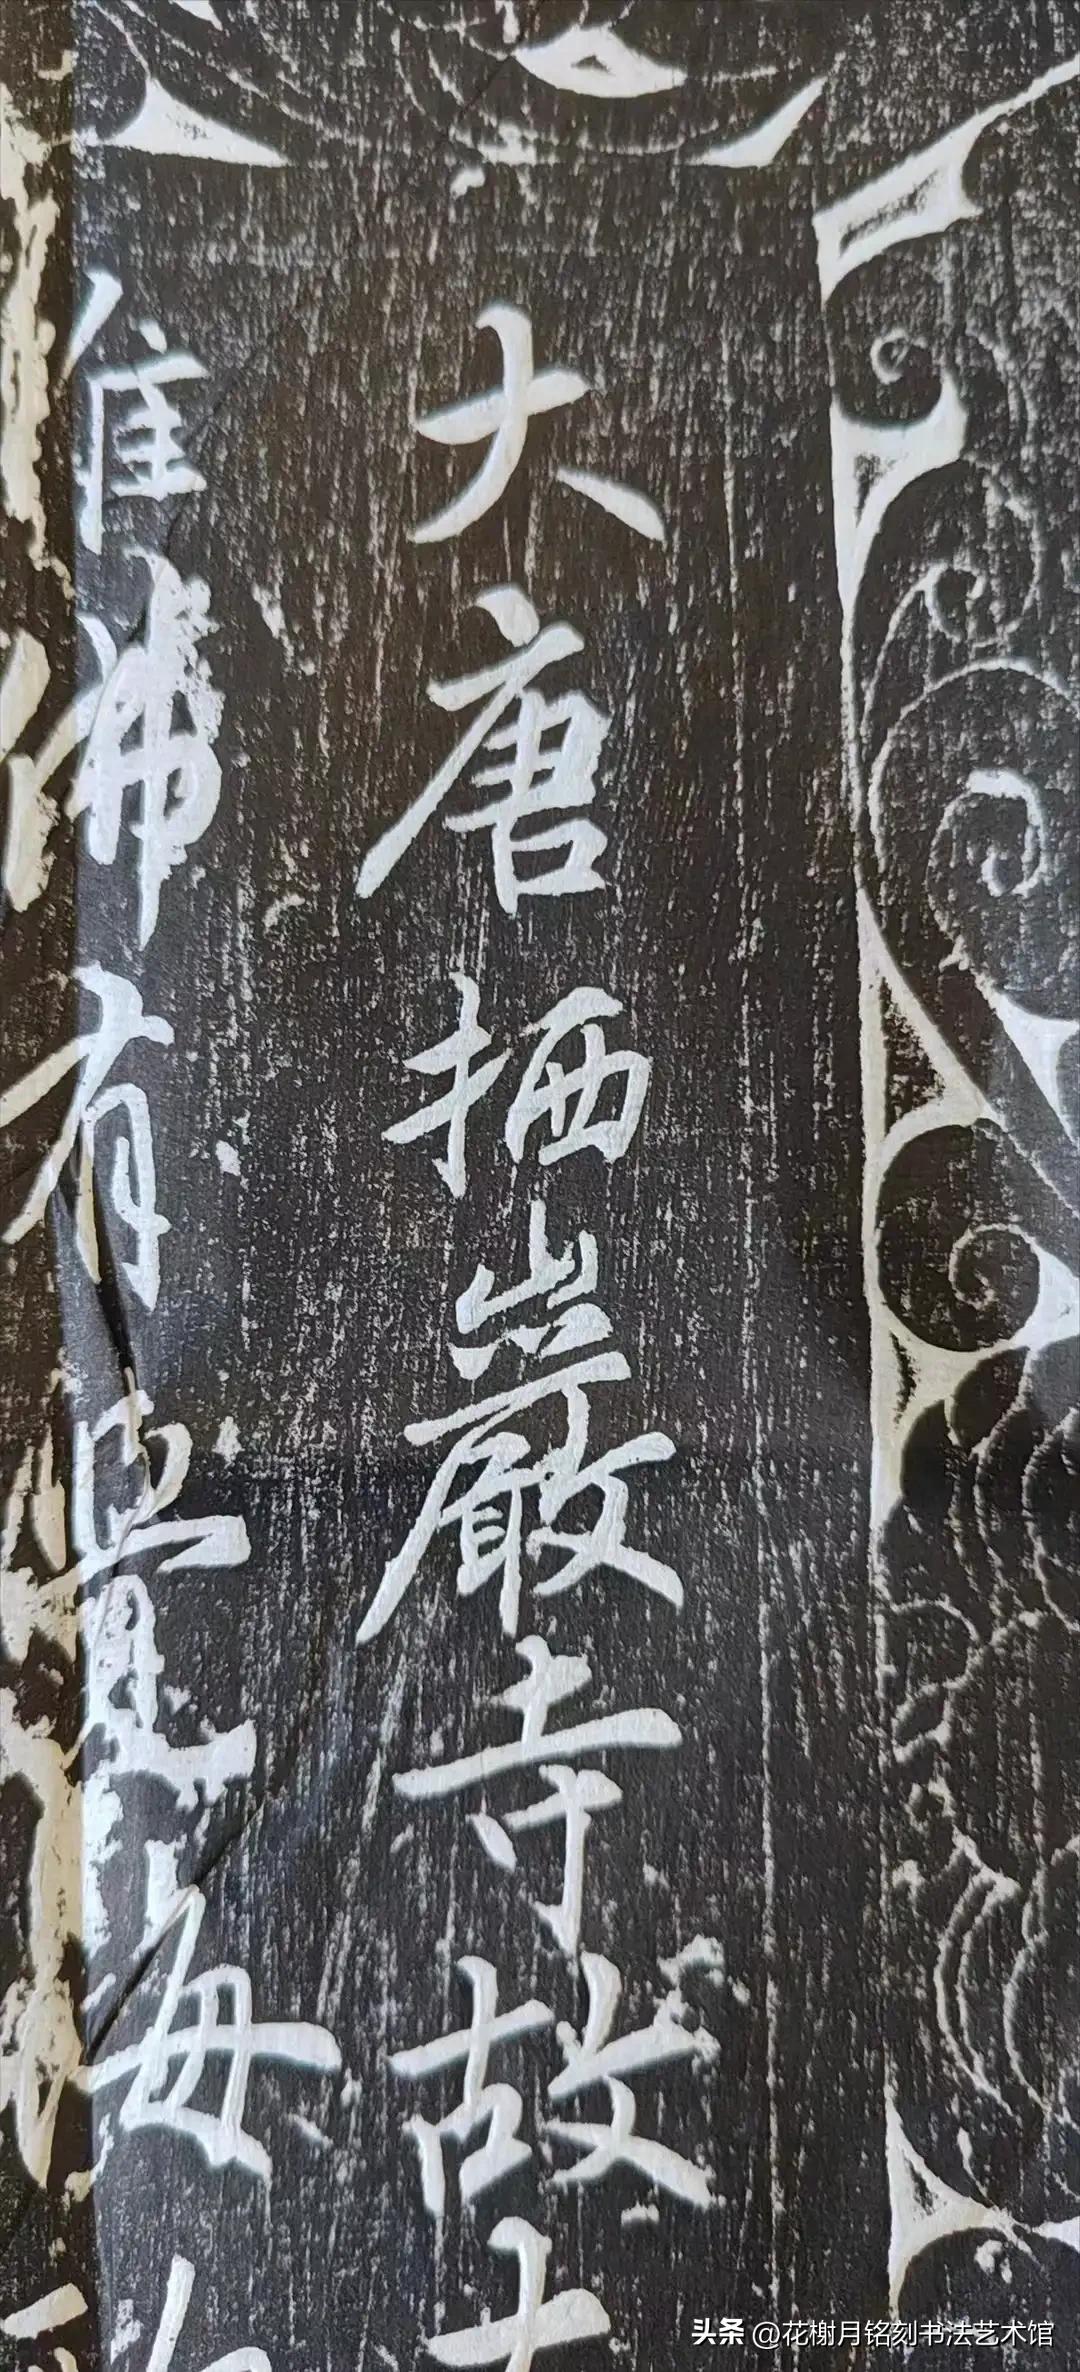 大唐栖巖寺故大
佛有
头条 @花榭月铭刻书法艺术馆